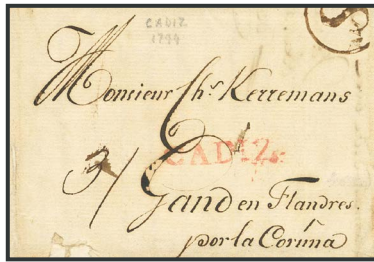 CADIZ
1794
Monsieur Chs. Kerremans
CADIZ
Gand en Flandres.
por la Coruña